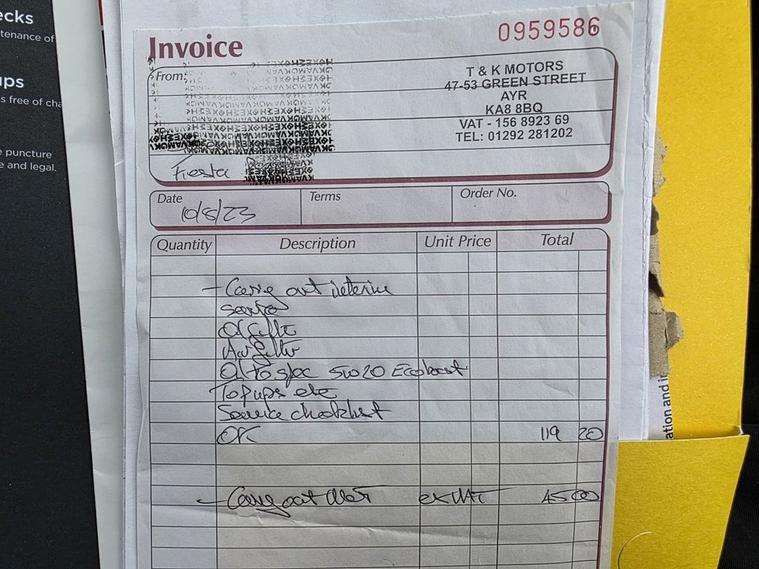 ecks
tenance of
ups
s free of cha
e puncture
e and legal.
Invoice
0959586
From:
T & K MOTORS
47-53 GREEN STREET
AYR
KA8 8BQ
VAT - 156 8923 69
TEL: 01292 281202
Fiesta
Date
Terms
Order No.
10/8/23
Quantity Description Unit Price Total
- Carry out interim
service
Oil filter
Air filter
Oil to spec 5w20 Ecoboost
Top ups etc
Service checklist
OK 119 20
- Carry out MOT ex VAT 45 00
ation and i